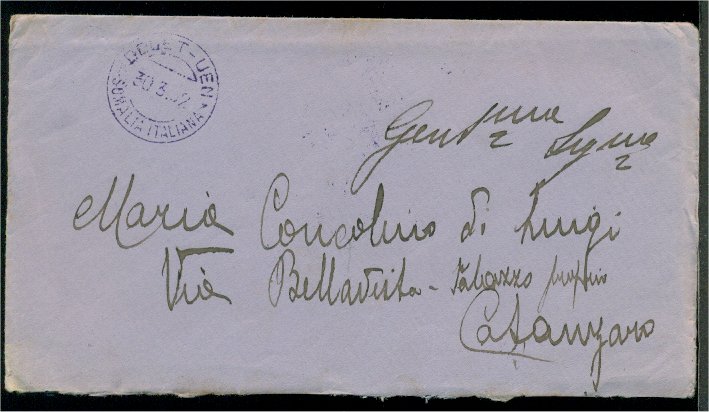 30.3.
SOMALIA ITALIANA
Gent.ma
Sig.na
Maria Concolino di Luigi
Via Bellavista - Palazzo proprio
Catanzaro